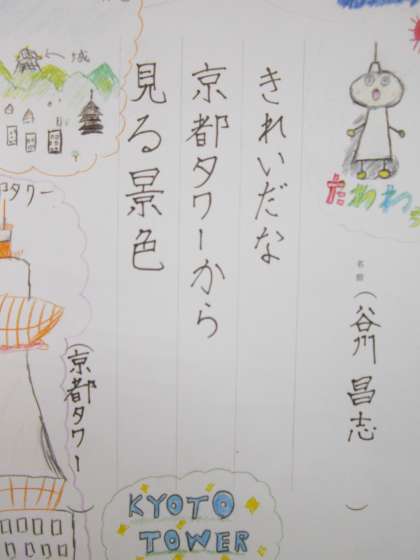 きれいだな
京都タワーから
見る景色
名前
(谷川昌志)
たわわ
城
タワー
(京都タワー)
KYOTO
TOWER